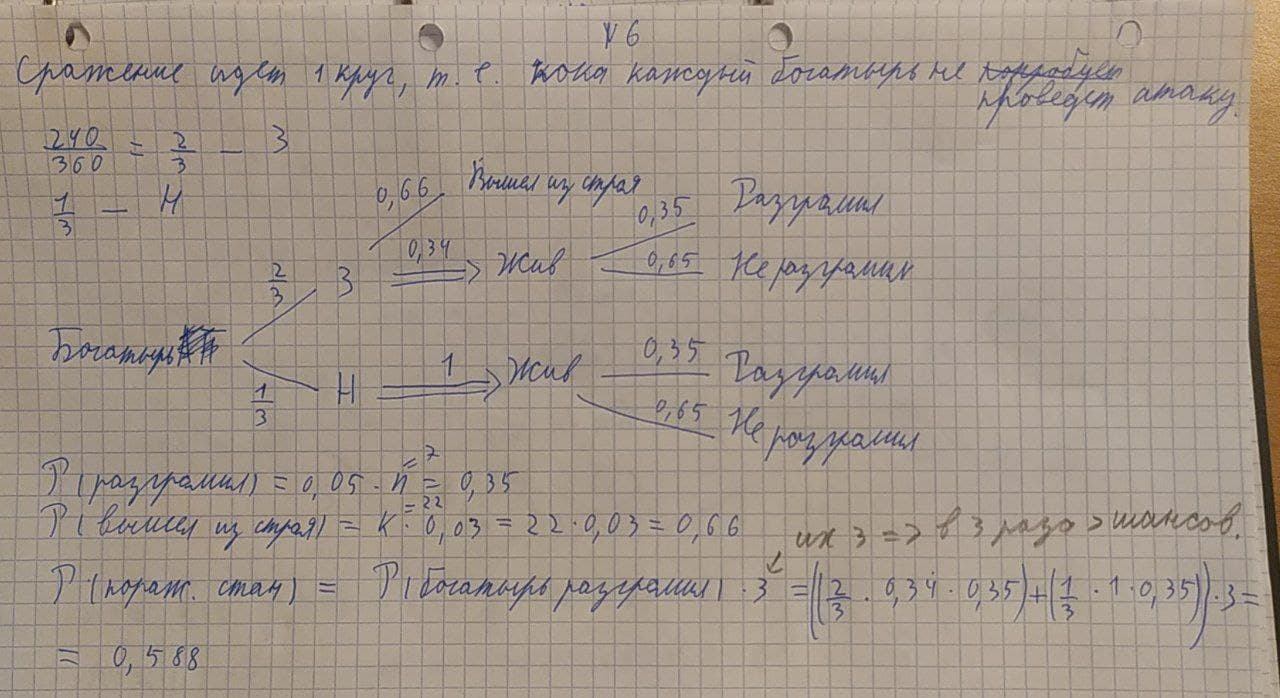 №6
Сражение идет 1 круг, т. е. пока каждый богатырь не попробует
проведет атаку.
240/360 = 2/3 — З
1/3 — Н
0,66 Вышел из строя
0,35 Разгромил
2/3 З 0,34 Жив 0,65 Не разгромил
Богатырь
1/3 Н 1 Жив 0,35 Разгромил
0,65 Не разгромил
P(разгромил) = 0,05 · n = 0,35
=7
P(вышел из строя) = K · 0,03 = 22 · 0,03 = 0,66
=22
их 3 => в 3 раза > шансов.
P(пораж. стан) = P(богатырь разгромил) · 3 = ((2/3 · 0,34 · 0,35) + (1/3 · 1 · 0,35)) · 3 =
= 0,588